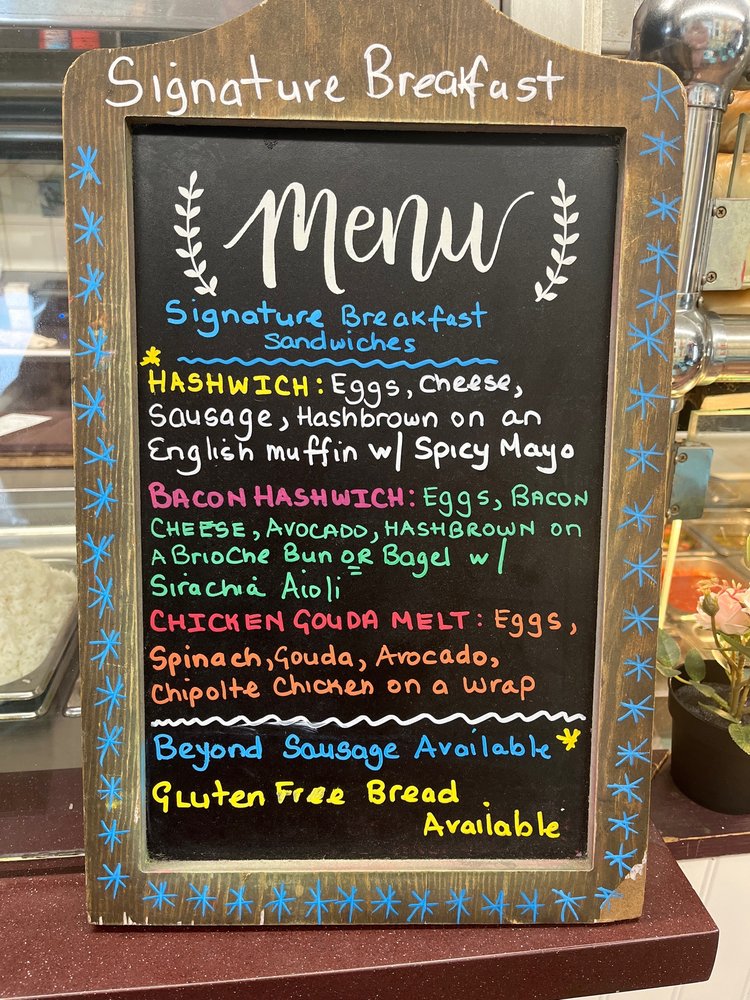 Signature Breakfast
Menu
Signature Breakfast
Sandwiches
* HASHWICH: Eggs, Cheese,
Sausage, Hashbrown on an
English muffin w/ Spicy Mayo
BACON HASHWICH: Eggs, BACON
CHEESE, AVOCADO, HASHBROWN on
A BrioChe Bun OR Bagel w/
Sirachia Aioli
CHICKEN GOUDA MELT: Eggs,
Spinach, Gouda, Avocado,
Chipolte Chicken on a wrap
Beyond Sausage Available *
Gluten Free Bread
Available